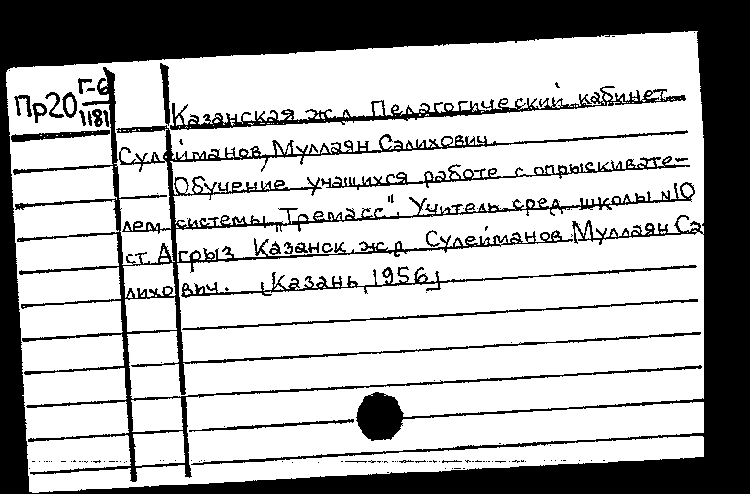 Пр20 Г-6
1181
Казанская ж.д. Педагогический кабинет
Сулейманов, Муллаян Салихович.
Обучение учащихся работе с опрыскивате-
лем системы „Тремасс". Учитель сред. школы №10
ст. Агрыз Казанск. ж.д. Сулейманов Муллаян Са-
лихович. [Казань, 1956]